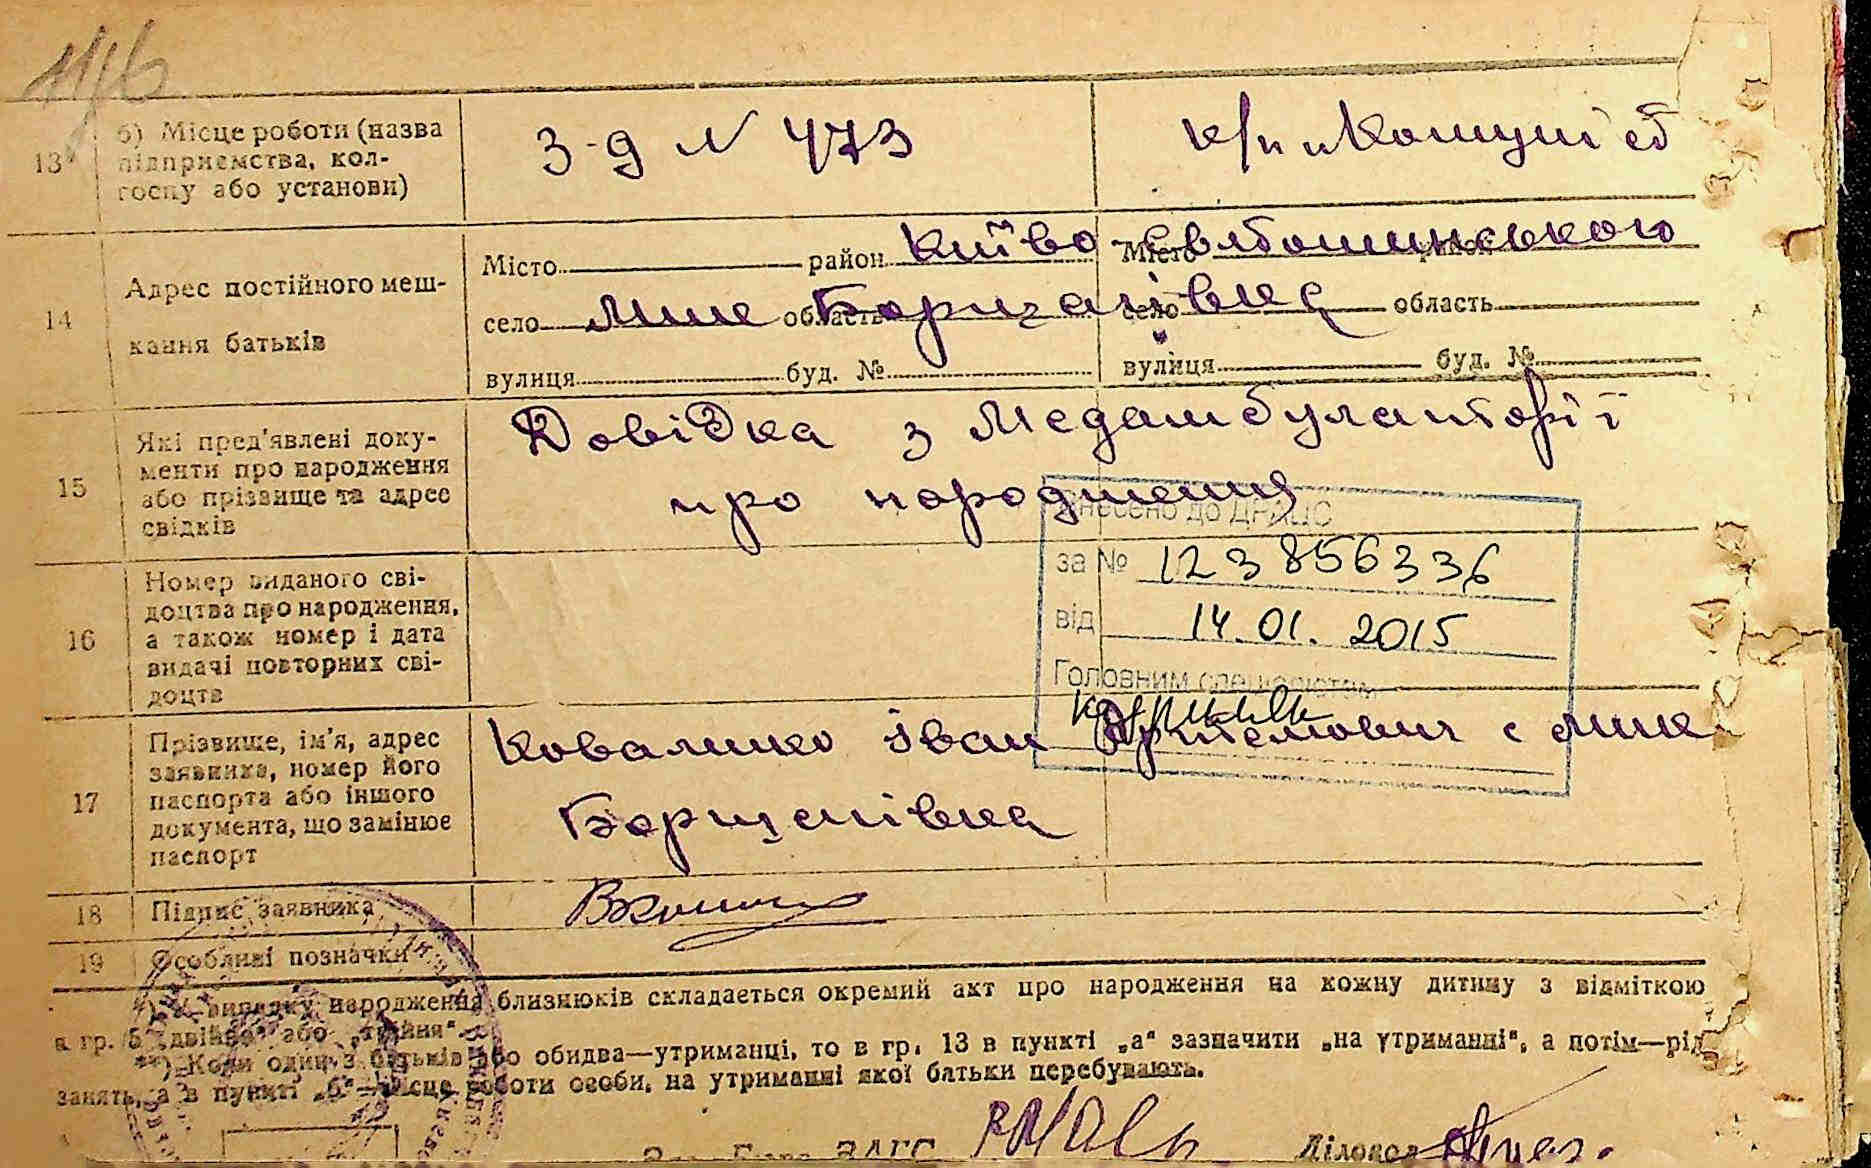 13
б) Місце роботи (назва
підприємства, кол-
госпу або установи)
З-д N 473
14
Адрес постійного меш-
кання батьків
Місто район Київо Святошинського
село Мик Борщагівка область
вулиця буд. №
Місто
село область
вулиця буд. №
15
Які пред'явлені доку-
менти про народження
або прізвище та адрес
свідків
Довідка з Медамбулаторії
про народження
16
Номер виданого сві-
доцтва про народження,
а також номер і дата
видачі повторних сві-
доцтв
Внесено до ДРАЦС
за № 123856336
від 14.01.2015
Головним спеціалістом
17
Прізвище, ім'я, адрес
заявника, номер його
паспорта або іншого
документа, що замінює
паспорт
Іван Артемович с Мик
Борщагівка
18
Підпис заявника
19
Особливі позначки
*) У випадку народження близнюків складається окремий акт про народження на кожну дитину з відміткою
в гр. 5 „двійня" або „трійня"
**) Коли один з батьків або обидва—утриманці, то в гр. 13 в пункті „а" зазначити „на утриманні", а потім—рід
занять, а в пункті „б"—місце роботи особи, на утриманні якої батьки перебувають.
Зав. Бюро ЗАГС
Діловод